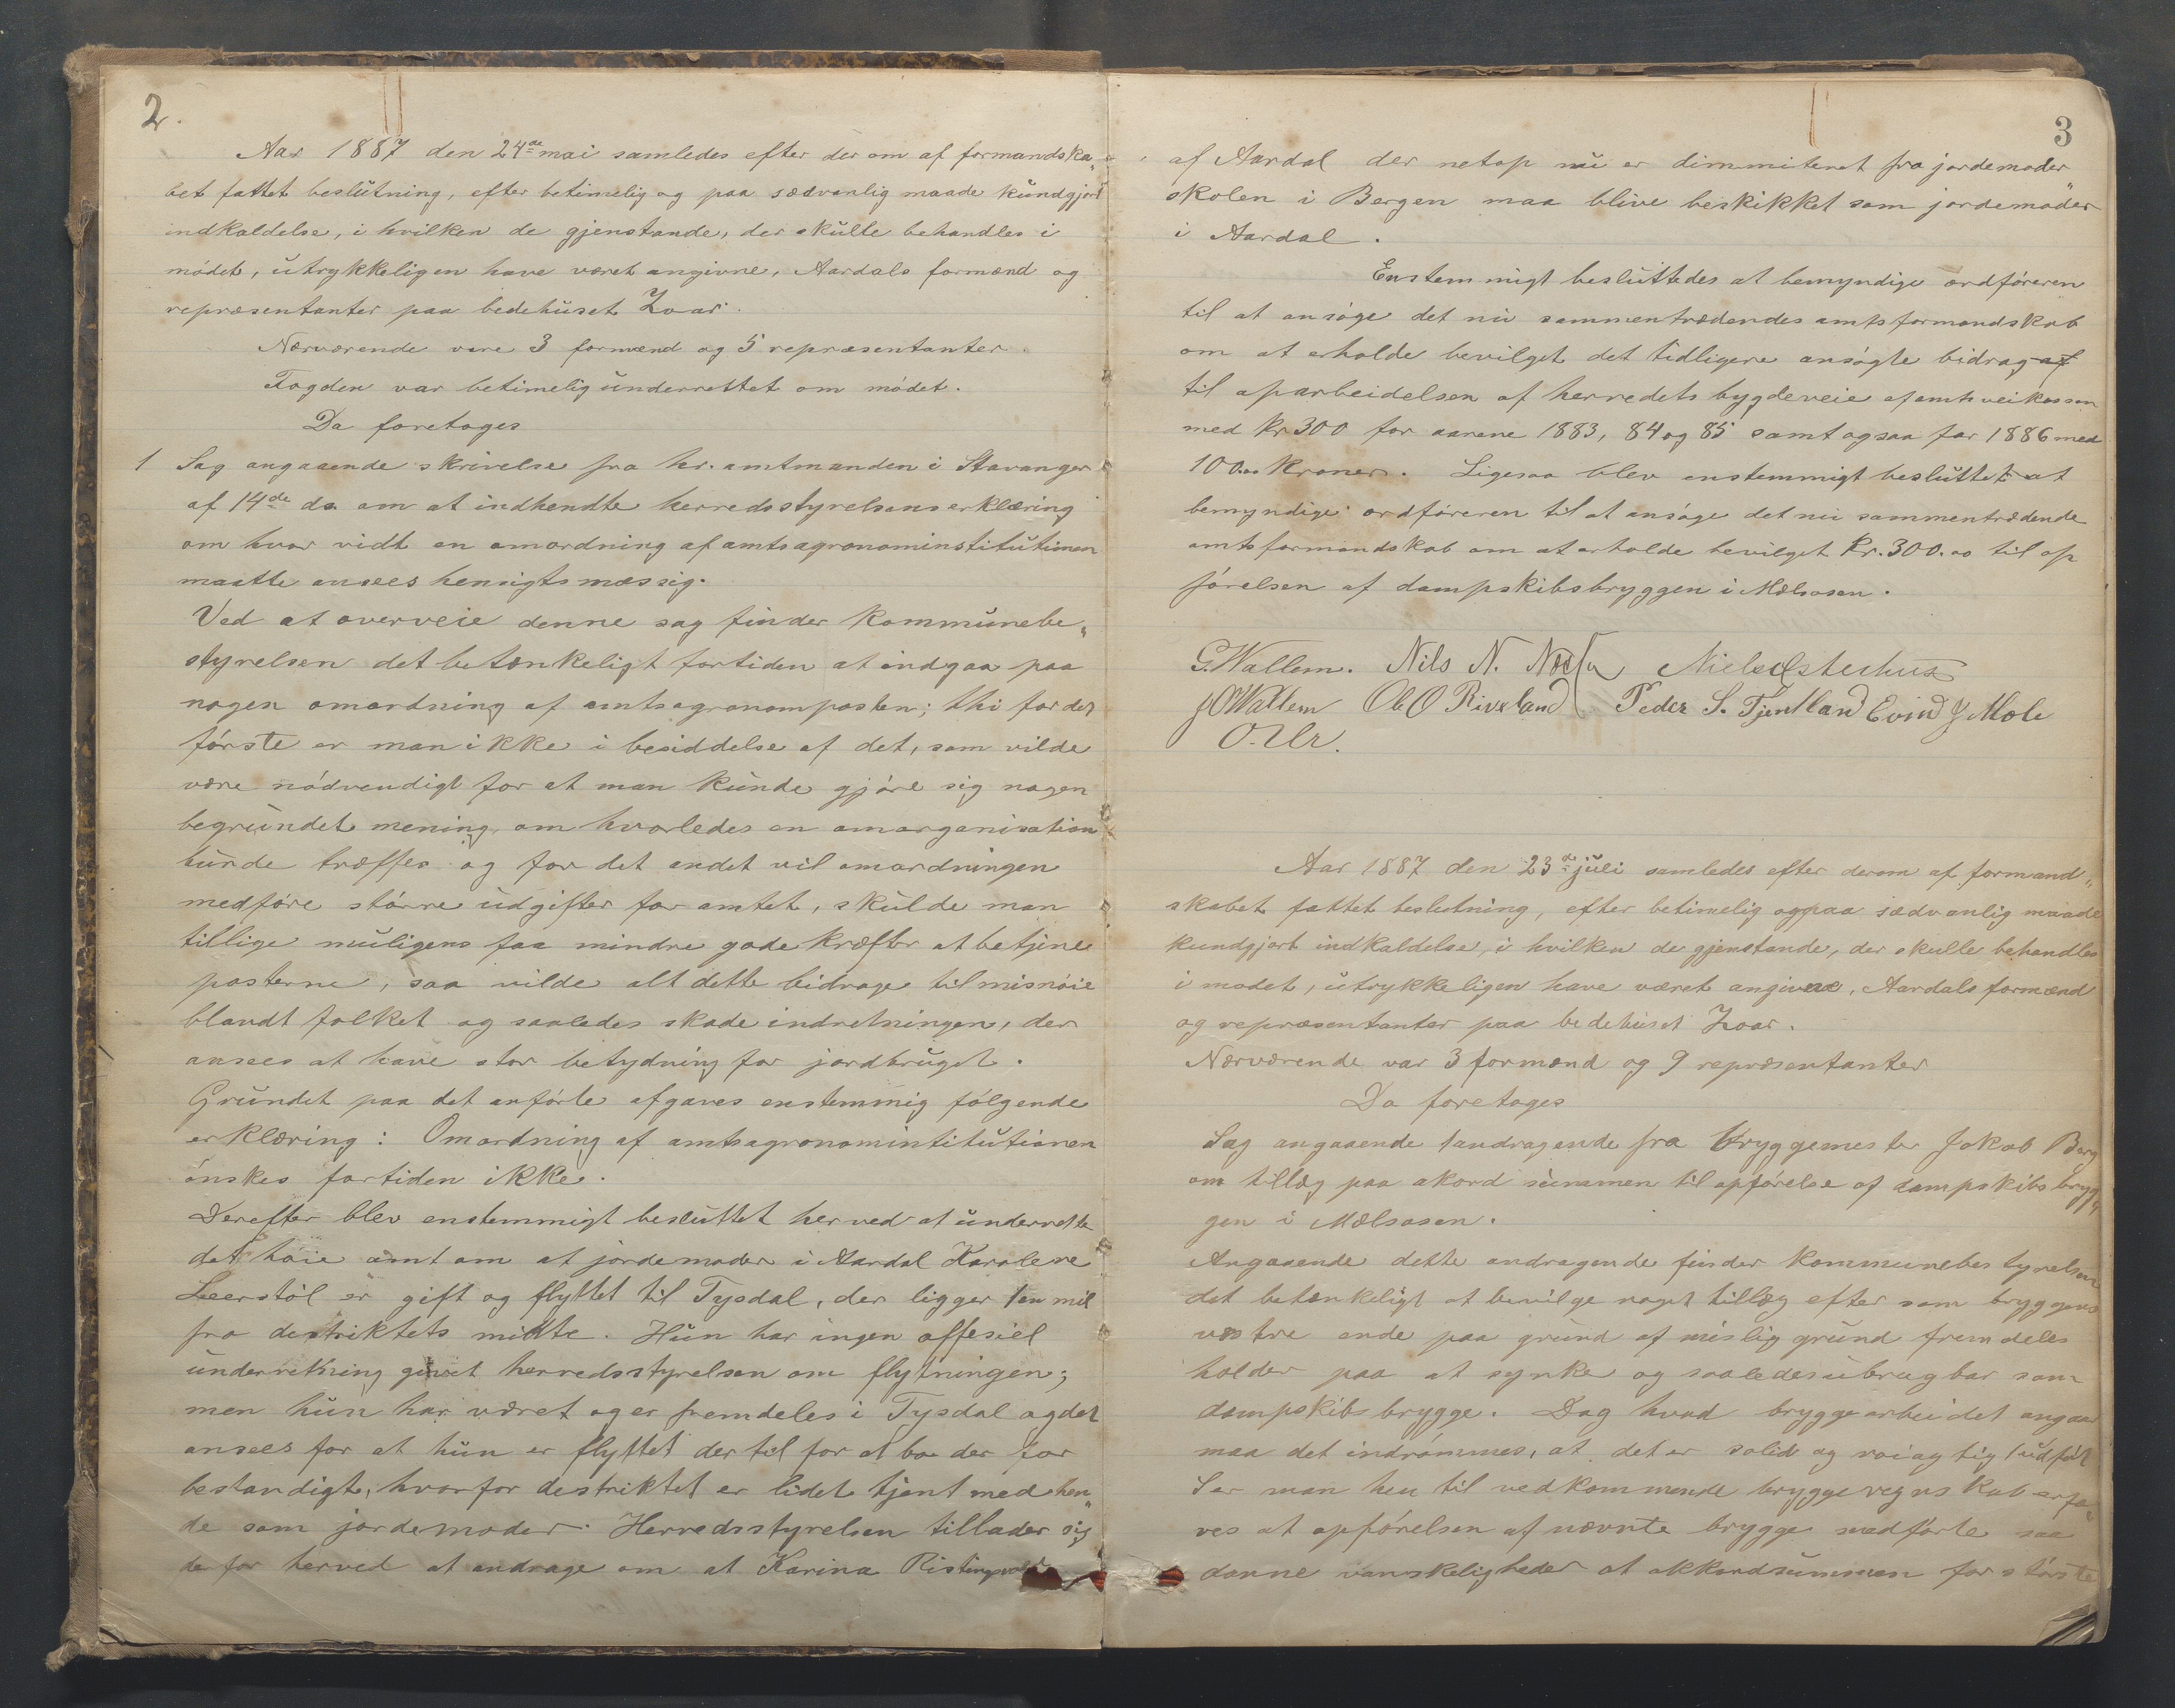 2.
Aar 1887 den 24de mai samledes efter der om af formandska„
bet fattet beslutning, efter betimelig og paa sædvanlig maade kundgjort
indkaldelse, i hvilken de gjenstande, der skulle behandles i
mödet, utrykkeligen have været angivne, Aardals formænd og
repræsentanter paa bedehuset Zoar.
Nærværende vare 3 formænd og 5 repræsentanter.
Fogden var betimelig underrettet om mödet.
Da foretoges
1 Sag angaaende skrivelse fra hr. amtmanden i Stavanger
af 14de ds. om at indhendte herredsstyrelsens erklæring
om hvor vidt en omordning af amtsagronominstitutionen
maatte ansees hensigtsmæssig.
Ved at overveie denne sag finder kommunebe„
styrelsen det betænkeligt fortiden at indgaa paa
nogen omordning af amtsagronomposten; thi for det
förste er man ikke i besiddelse af det, som vilde
være nödvendigt for at man kunde gjöre sig nogen
begrundet mening om hvorledes en omorganisation
burde træffes og for det andet vil omordningen
medföre större udgifter for amtet, skulde man
tillige muligens faa mindre gode kræfter at betjene
posterne, saa vilde alt dette bidrage til misnöie
blandt folket og saaledes skade indretningen, der
ansees at have stor betydning for jordbruget.
Grundet paa det anförte afgaves enstemmig fölgende
erklæring: Omordning af amtsagronomintitutionen
önskes fortiden ikke.
Derefter blev enstemmigt besluttet herved at underrette
det höie amt om at jordemoder i Aardal Karolene
Leerstöl er gift og flyttet til Tysdal, der ligger 1 en mil
fra destriktets midte. Hun har ingen offesiel
underretning givet herredsstyrelsen om flytningen;
men hun har været og er fremdeles i Tysdal og det
ansees for at hun er flyttet der til for at bo der for
bestandigt, hvorfor destriktet er lidet tjent med hen„
de som jordemoder. Herredsstyrelsen tillader sig
derfor herved at andrage om at Karina
3
af Aardal der netop nu er dimmiteret fra jordemoder„
skolen i Bergen maa blive beskikket som jordemoder
i Aardal.
Enstemmigt besluttedes at bemyndige ordföreren
til at ansöge det nu sammentrædendes amtsformandskab
om at erholde bevilget det tidligere ansögte bidrag af
til oparbeidelsen af herredets bygdeveie af amtsveikassen
med kr 300 for aarene 1883, 84 og 85 samt ogsaa for 1886 med
100.00 kroner. Ligesaa blev enstemmigt besluttet at
bemyndige ordföreren til at ansöge det nu sammentrædende
amtsformandskab om at erholde bevilget kr. 300.00 til op
förelsen af dampskibsbryggen i Mælsosen.
G. Wallem. Nils N. Niels Østerhus
J O Wallem Ole O Riveland Peder S. Tjentland Evind J Mole
O. Ur.
Aar 1887 den 23de juli samledes efter derom af formand„
skabet fattet beslutning, efter betimelig og paa sædvanlig maade
kundgjort indkaldelse, i hvilken de gjenstande, der skulle behandles
i mödet, utrykkeligen have været angivne, Aardals formænd
og repræsentanter paa bedehuset Zoar.
Nærværende var 3 formænd og 9 repræsentanter
Da foretoges
Sag angaaende 1 andragende fra bryggemester Jakob Berg
om tillæg paa akord summen til opförelse af dampskibsbryg„
gen i Mælsosen.
Angaaende dette andragende finder kommunebestyrelsen
det betænkeligt at bevilge noget tillæg efter som bryggens
vestre ende paa grund af mislig grund fremdeles
holder paa at synke og saaledes ubrugbar som
dampskibsbrygge. Dog hvad bryggearbeidet angaar
maa det indrömmes, at det er solid og nöiagtig udfört
Ser man hen til vedkommende bryggeregnskab erfa„
res at opförelsen af nævnte brygge medförte saa
danne vanskeligheder at akkordsummen for störste